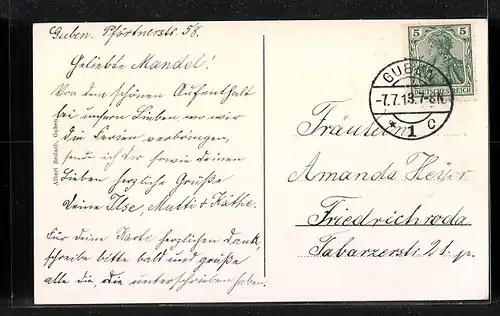 Guben. Pförtnerstr. 58.
Geliebte Mandel!
Von dem schönen Aufenthalt
bei unsern Lieben, wo wir
die Ferien verbringen,
send ich Dir sowie deinen
Lieben herzliche Grüße
Deine Ilse, Mutti + Käthe.
Für deine Karte herzlichen Dank,
schreibe bitte bald und grüße
alle die, die unterschrieben haben.
5 5
DEUTSCHES REICH
GUBEN
-7.7.15.7-8N.
* 1 C
Fräulein
Amanda Heyer
Friedrichroda
Tabarzerstr. 21. p.